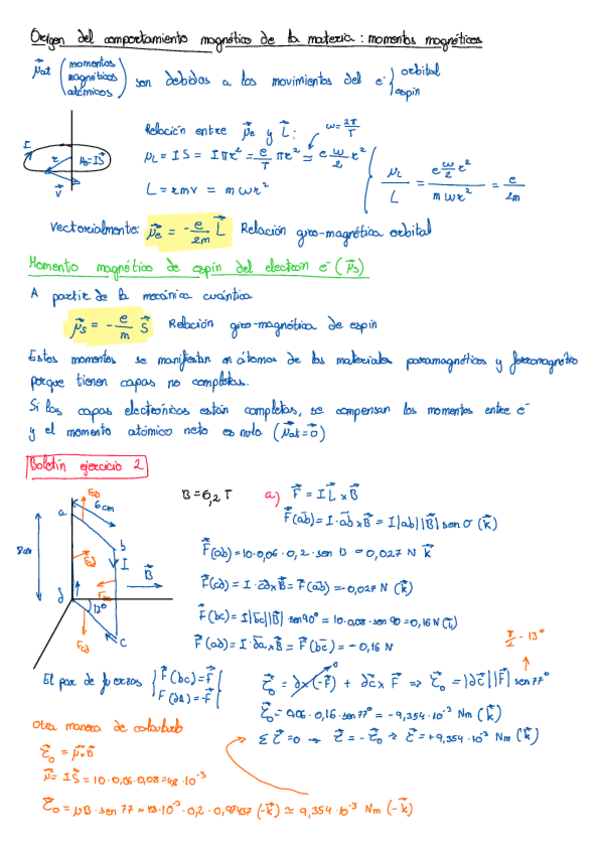 Origen del comportamiento magnético de la materia: momentos magnéticos
μ⃗at (momentos magnéticos atómicos) son debidos a los movimientos del e⁻ { orbital espín
Relación entre μ⃗e y L⃗: ω=2π/T
I r μ₀=IS v⃗
μL = IS = Iπr² = e/T πr² = e ω/2 r²
L = rmv = mωr²
μL/L = (e ω/2 r²)/(mωr²) = e/2m
Vectorialmente: μ⃗e = -e/2m L⃗ Relación giro-magnética orbital
Momento magnético de espín del electrón e⁻ (μ⃗s)
A partir de la mecánica cuántica
μ⃗s = -e/m S⃗ Relación giro-magnética de espín
Estos momentos se manifiestan en átomos de los materiales paramagnéticos y ferromagnético
porque tienen capas no completas.
Si las capas electrónicas están completas, se compensan los momentos entre e⁻
y el momento atómico neto es nulo. (μ⃗at=0)
Boletín ejercicio 2
B=0,2 T
a) F⃗ = I L⃗ × B⃗
F⃗(ab) = I·ab × B⃗ = I|ab||B⃗| sen σ (k⃗)
6cm a b I B⃗ d 13º c
F⃗(ab) = 10·0,06·0,2·sen 13 = 0,027 N k⃗
F⃗(cd) = I·cd × B⃗ = F⃗(ab) = -0,027 N (k⃗)
F⃗(bc) = I|bc||B⃗| sen90º = 10·0,08·sen 90 = 0,16 N
F⃗(ad) = I·da × B⃗ = F⃗(bc) = -0,16 N
π/2 - 13º
El par de fuerzas { F⃗(bc)=F⃗ F⃗(da)=-F⃗ }
0
+ dc × F⃗ ⇒ τ⃗₀ = |dc||F⃗| sen 77º
τ⃗₀ = 0,06·0,16·sen 77º = -9,354·10⁻³ Nm (k⃗)
Στ⃗=0 → τ⃗ = -τ⃗₀ ⇒ τ⃗ = +9,354·10⁻³ Nm (k⃗)
Otra manera de calcularlo
τ⃗₀ = μ⃗×B⃗
μ⃗ = IS⃗ = 10·0,06·0,08 = 48·10⁻³
τ⃗₀ = μB·sen 77 = ·0,2·0,97437 (-k⃗) ≃ 9,354·10⁻³ Nm (-k⃗)